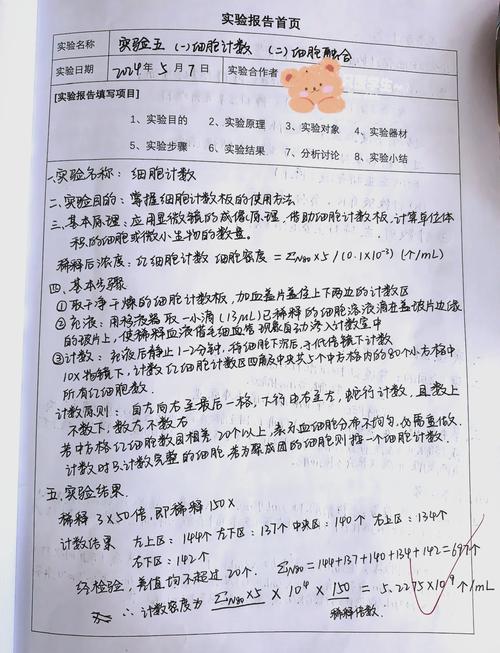 实验报告首页
实验名称 实验五 (一)细胞计数 (二)细胞融合
实验日期 2024年5月7日 实验合作者 学生~
[实验报告填写项目]
1、实验目的 2、实验原理 3、实验对象 4、实验器材
5、实验步骤 6、实验结果 7、分析讨论 8、实验小结
一.实验名称：细胞计数
二.实验目的：掌握细胞计数板的使用方法.
三.基本原理：应用显微镜的成像原理，借助细胞计数板，计算单位体
积的细胞或微小生物的数量。
稀释后浓度：红细胞计数 细胞密度 = ΣN80×5/(0.1×10⁻³) (个/mL)
四.基本步骤
①取干净干燥的细胞计数板，加血盖片盖住上下两边的计数区
②充液：用移液器取一小滴(13μL)已稀释的细胞溶液滴在盖玻片边缘
的玻片上，使稀释血液借毛细血管现象自动渗入计数室中
③计数：充液后静止1-2分钟，待细胞下沉后，于低倍镜下计数
10X物镜下，计数红细胞计数区四角及中央共5个中方格内的80个小方格中
所有红细胞数.
计数原则：自左向右至最后一格，下行由右至左，蛇行计数，且数上
不数下，数左不数右
若中方格红细胞数目相差20个以上，表示血细胞分布不均匀，必需重做.
计数时只计数完整的细胞，若为聚成团的细胞则按一个细胞计数.
五.实验结果.
稀释 3×50倍，即稀释150X
计数结果 左上区：144个 左下区：137个 中央区：140个 右上区：134个
右下区：142个
经检验，差值均不超过20个. ΣN80=144+137+140+134+142=697个
∴计数密度为 ΣN80×5 × 10⁴ × 150 = 5.2275×10⁹个/mL
稀释倍数.